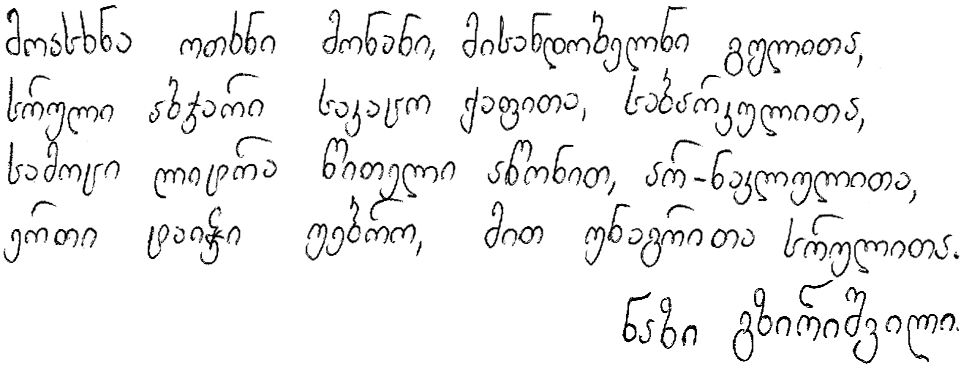 მოასხნა ოთხნი მონანი, მისანდობელნი გულითა,
სრული აბჯარი საკაცო ქაფითა, საბარკულითა,
სამოცი ლიტრა წითელი აწონით, არ-ნაკლულითა,
ერთი ტაიჭი უებრო, მით უნაგრითა სრულითა.
ნაზი გზირიშვილი.